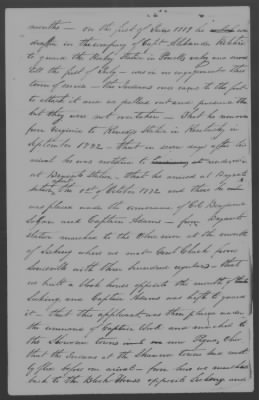 months — on the first of June 1779 he was
draftin in the company of Capt Alexander Ritchie
to guard the Rusty Station in Powells valley and served
till the first of July — was in no engagement this
term of service — the Indians once came to the fort
to attack it and us sallied out and pursued the
but they were not overtaken — That he moved
from Virginia to Kincads Station in Kentucky in
September 1782 — that in seven days after his
arrival he was notified to rendezvous
at Bryants Station — that he arrived at Bryants
station, the 2d of October 1782 and there he
was placed under the command of Col Benjamin
Logan and Captain Adams — from Bryants
station marched to the Ohio river at the mouth
of Licking where we met Genl Clark from
Louisville with three hundred regulars — that
we built a block house opposite the mouth of
Licking and Captain Adams was left to guard
it — that the applicant was then placed under
the command of Captain and marched to
the Shawnee towns on Piqua, Ohio
that the Indians at the Shawnee towns had most
ly fled before our arrival — from here we marched
back to the Block House opposite Licking and